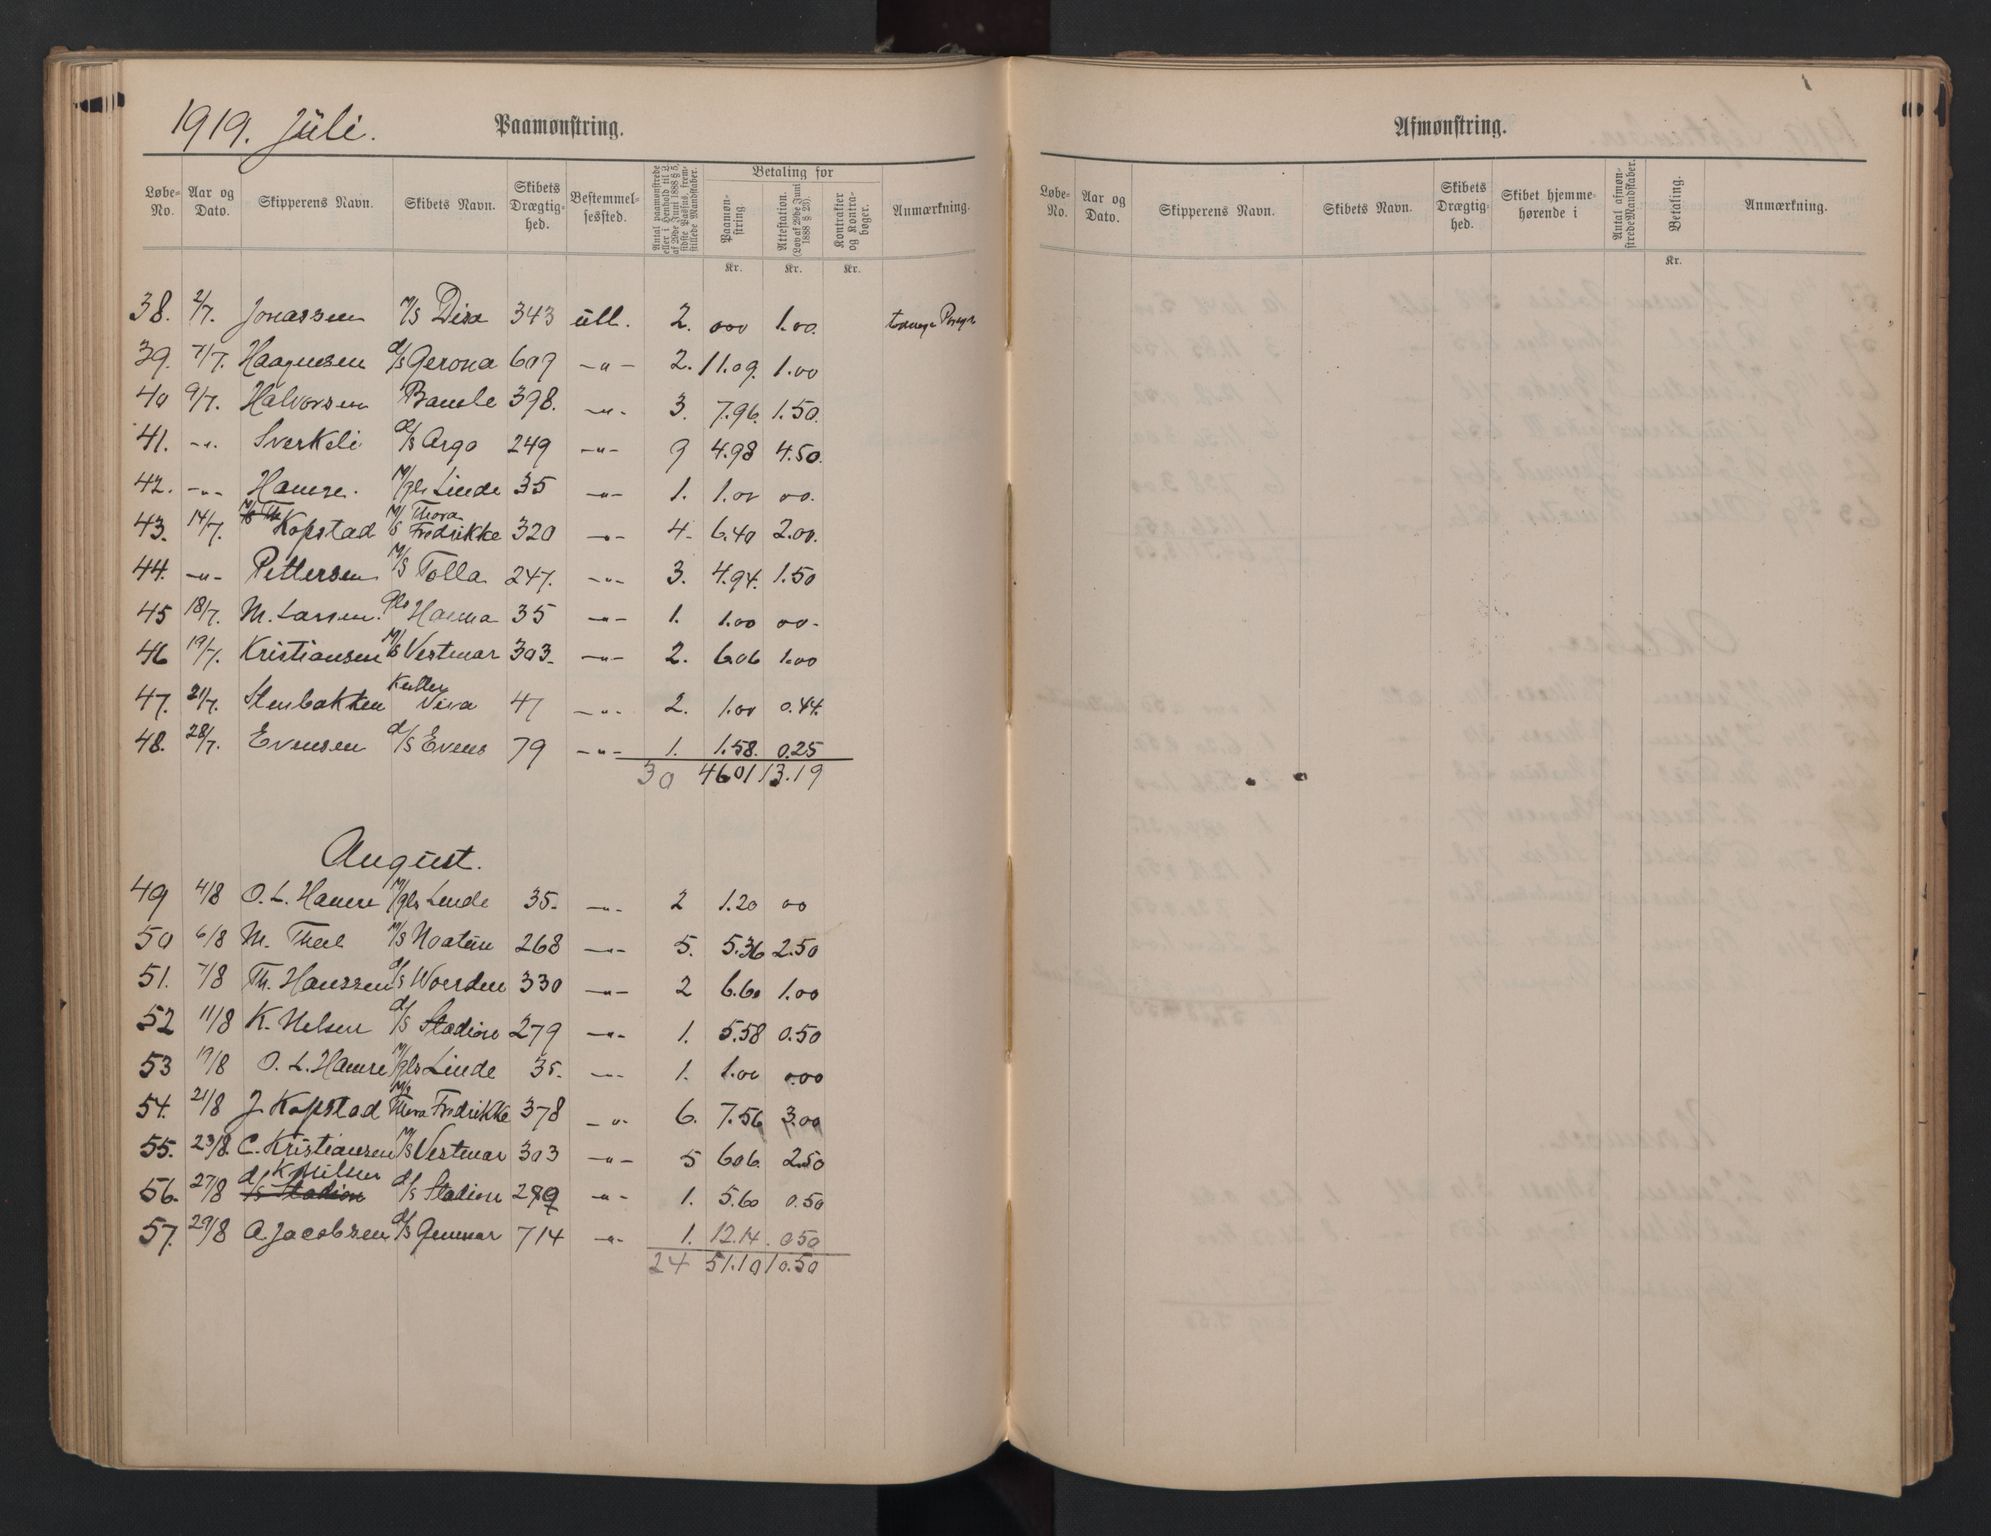 1919. Juli.
Paamønstring.
Løbe-No. Aar og Dato. Skipperens Navn. Skibets Navn. Skibets Drægtighed. Bestemmelsessted. Antal paamønstrede eller i Henhold til L. af 29de Juni 1888 § 5, sidste Passus, fremstillede Mandskaber. Betaling for Paamønstring. Attestation. (Lov af 29de Juni 1888 § 23). Kontrakter og Kontrabøger. Anmærkning.
Kr. Kr. Kr.
38. 2/7. Jonassen M/S Disa 343 utl. 2. 000 1.00.
39. 7/7. Haagensen d/s Gerona 609 -„- 2. 11.09. 1.00
40 9/7. Halvorsen Bamble 398. -„- 3. 7.96. 1.50.
41. -„- Sverkeli d/s Argo 249 -„- 9 4.98 4.50.
42. -„- Hamre. M/gls Linde 35 -„- 1. 1.00 00.
43. 14/7. Kopstad M/S Thora Fredrikke 320 -„- 4- 6.40 2.00.
44. -„- Pettersen M/S Tolla 247. -„- 3. 4.94. 1.50
45 18/7. M. Larsen. gls Hanna 35 -„- 1. 1.00 00-
46 19/7. Kristiansen M/S Vestmar 303- -„- 2. 6.06 1.00
47. 21/7. Stenbakken Kutter Viva 47 -„- 2. 1.00 0.44.
48. 28/7. Evensen d/s Evens 79 -„- 1. 1.58. 0.25
30 46 01 13.19
August.
49 4/8 O. L. Hamre M/gls Linde 35- -„- 2 1.20 00
50 6/8 M. M/S Noatun 268 -„- 5. 5.36 2.50
51. 7/8 Th. Hanssen d/s Woerden 330 -„- 2 6.60 1.00
52 11/8 K. Nilsen d/s Stadion 279 -„- 1. 5.58 0.50
53 19/8 O. L. Hamre M/gls Linde 35- -„- 1. 1.00 0.00
54. 21/8 J. Kopstad M/S Thora Fredrikke 378 -„- 6. 7.56 3.00
55. 23/8. C. Kristiansen M/S Vestmar 303 -„- 5 6.06. 2.50
56. 27/8 d/s Stadion K. Nilsen d/s Stadion 279 -„- 1. 5.60 0.50
57. 29/8 A. Jacobsen d/s Gunnar 714 -„- 1. 12.14. 0.50
24 51.10 10.50
Afmønstring.
Løbe-No. Aar og Dato. Skipperens Navn. Skibets Navn. Skibets Drægtighed. Skibet hjemmehørende i Antal afmønstrede Mandskaber. Betaling. Anmærkning.
Kr.